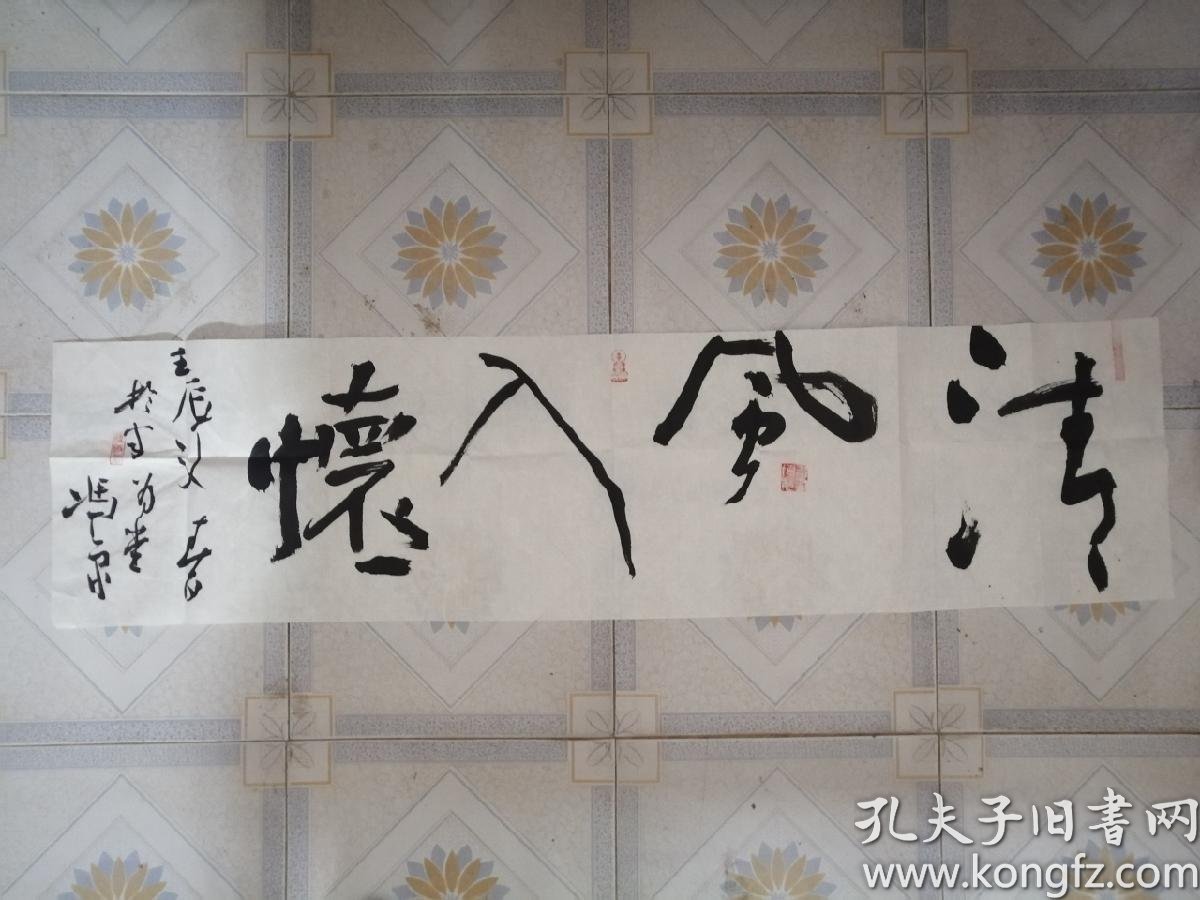 清風入懷
壬辰 春
於守
馮
孔夫子旧書网
www.kongfz.com